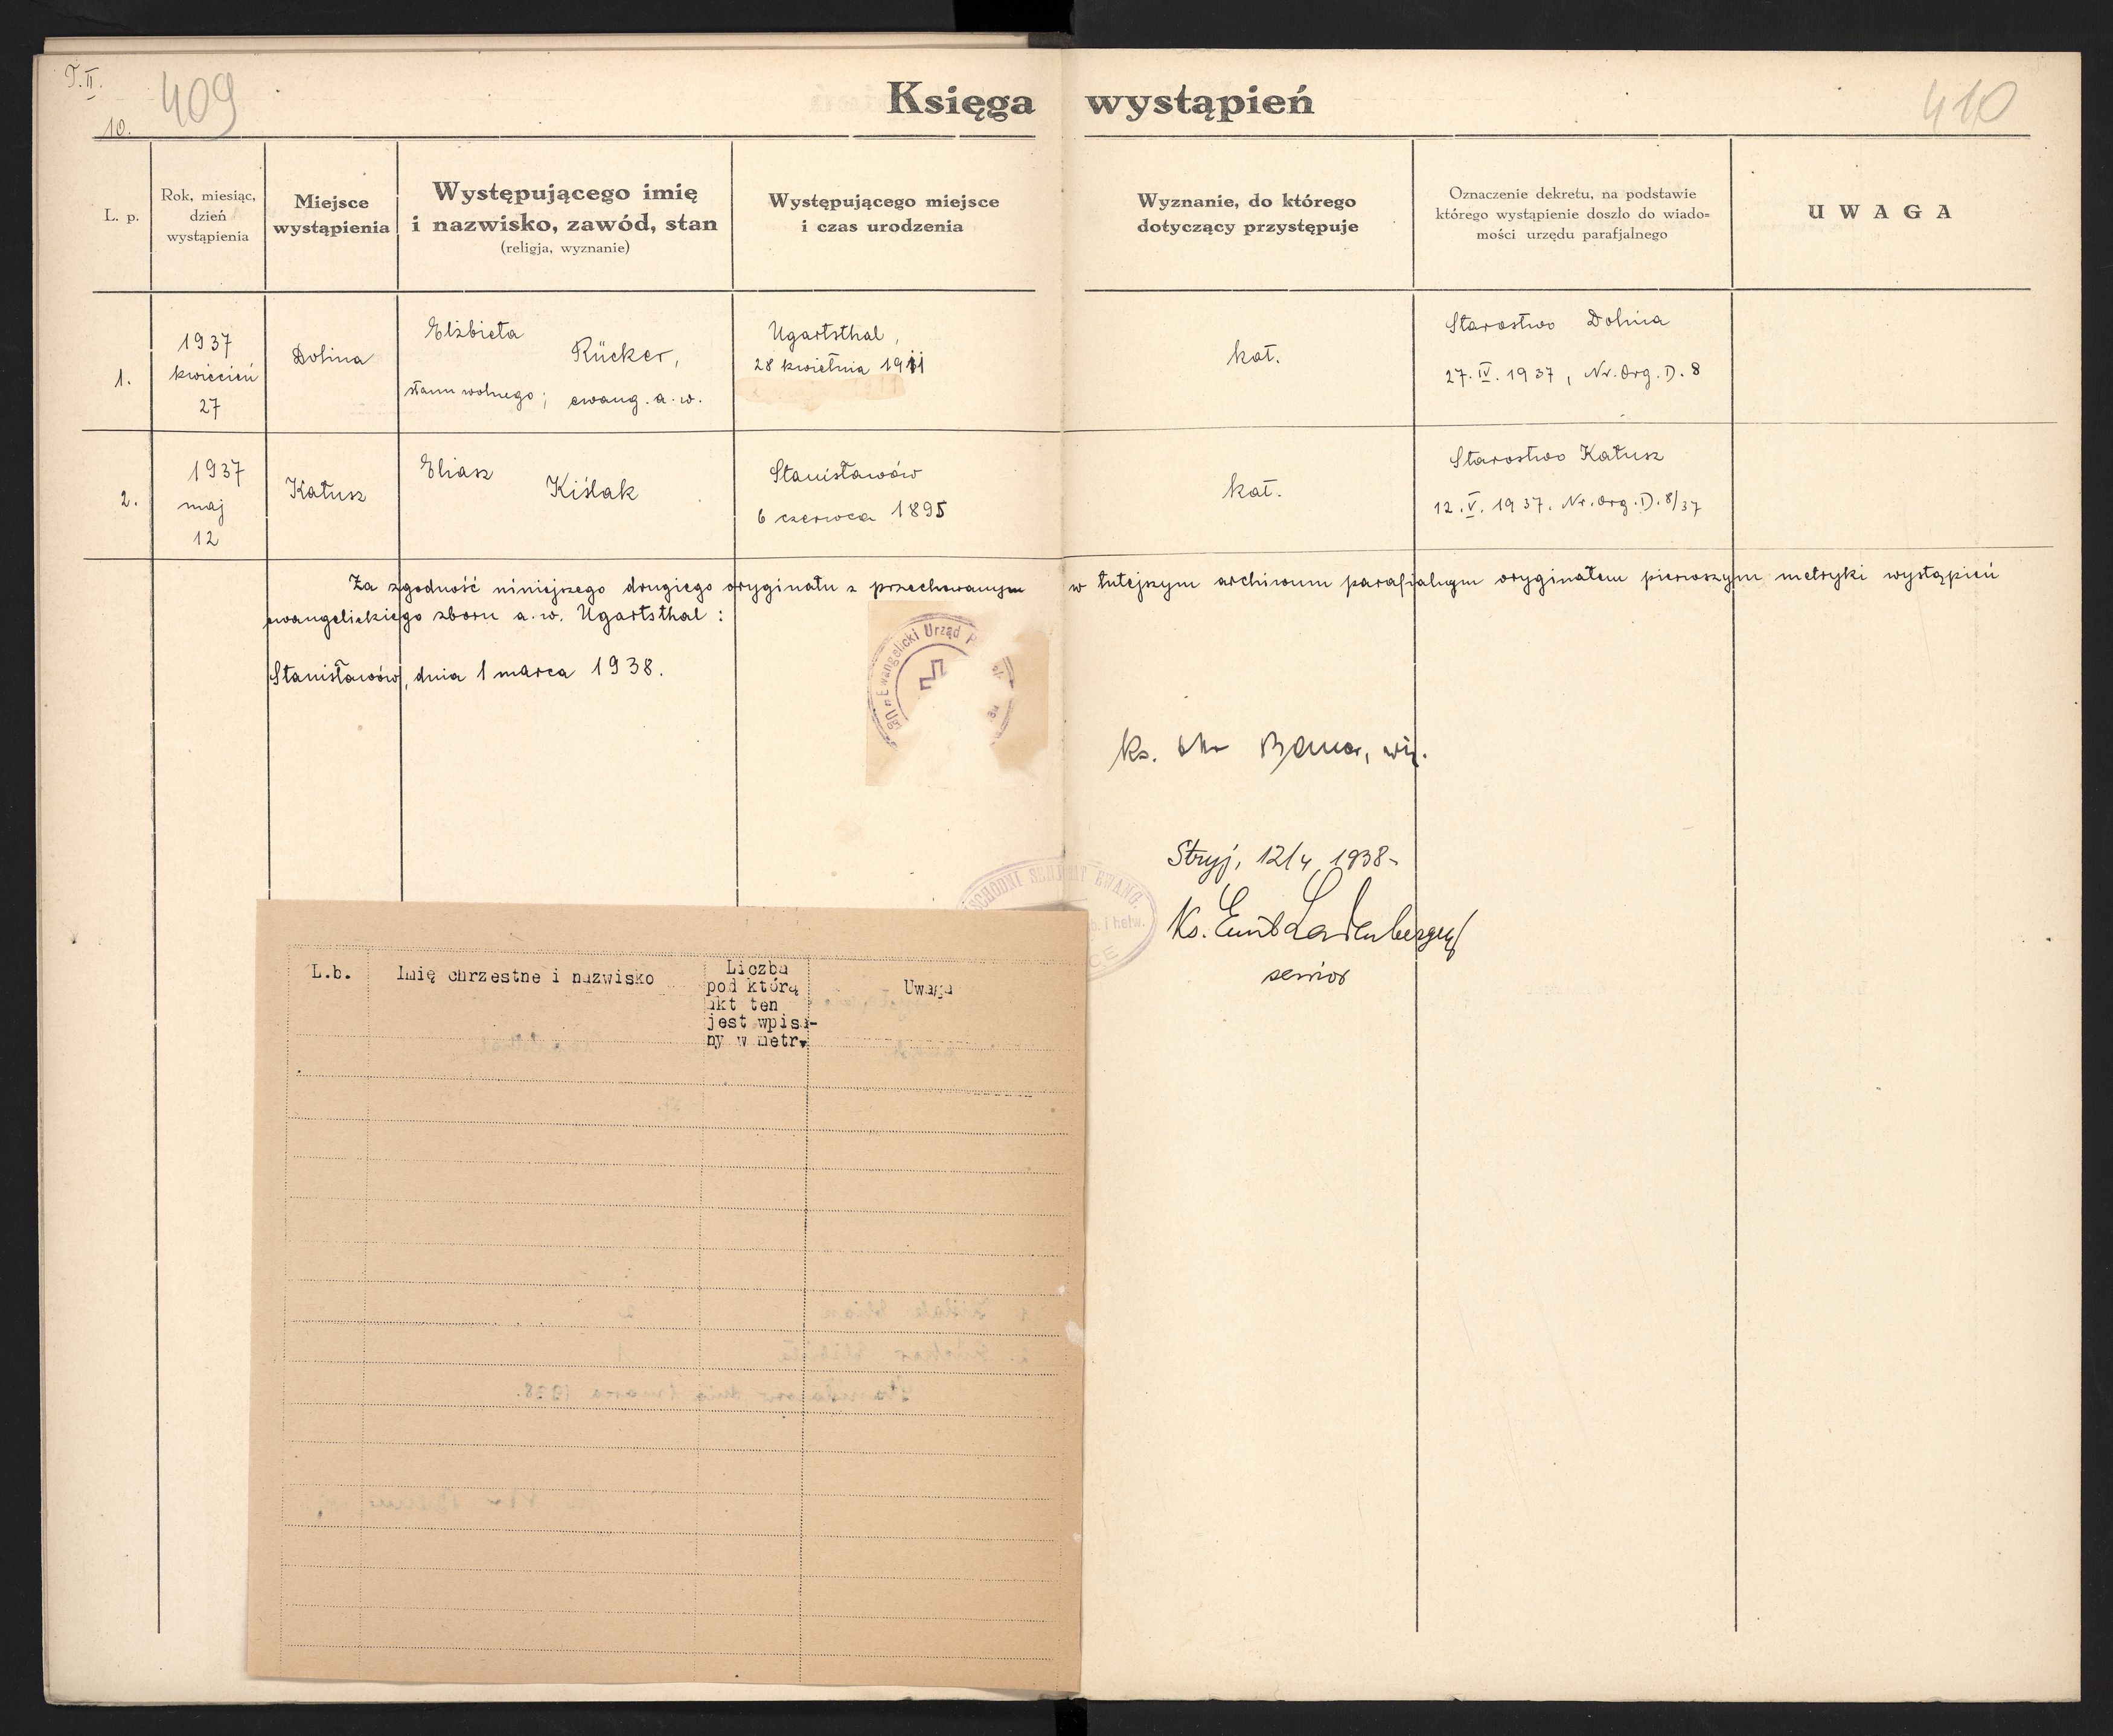 T. II.
10.
409
410
Księga wystąpień
L. p.
Rok, miesiąc,
dzień
wystąpienia
Miejsce
wystąpienia
Występującego imię
i nazwisko, zawód, stan
(religja, wyznanie)
Występującego miejsce
i czas urodzenia
Wyznanie, do którego
dotyczący przystępuje
Oznaczenie dekretu, na podstawie
którego wystąpienie doszło do wiado=
mości urzędu parafjalnego
UWAGA
1.
1937
kwiecień
27
Dolina
Elżbieta
Rücker,
stanu wolnego; ewang. a. w.
Ugartsthal,
28 kwietnia 1911
kat.
Starostwo Dolina
27. IV. 1937, Nr. Org. D. 8
2.
1937
maj
12
Kałusz
Eliasz
Kiślak
Stanisławów
6 czerwca 1895
kat.
Starostwo Kałusz
12. V. 1937. Nr. Org. D. 8/37
Za zgodność niniejszego drugiego oryginału z przechowanym w tutejszym archiwum parafialnym oryginałem pierwszym metryki wystąpień
ewangelickiego zboru a. w. Ugartsthal:
Stanisławów, dnia 1 marca 1938.
Ewangelicki Urząd
Ks. Bauer, wik.
Stryj, 12/4 1938-
SCHODNI SENJORAT EWANG.
b. i helw.
CE
Ks. Emil Ladenberger
senior
L.b.
Imię chrzestne i nazwisko
Liczba
pod którą
akt ten
jest wpisa-
ny w metr.
Uwaga